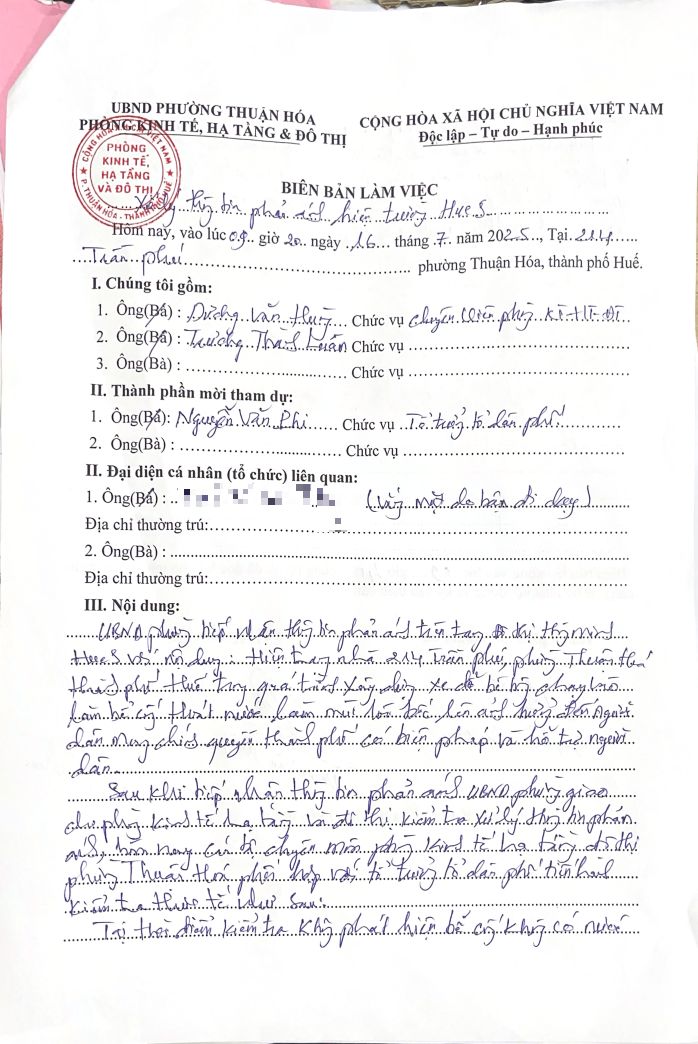 UBND PHƯỜNG THUẬN HÓA
PHÒNG KINH TẾ, HẠ TẦNG & ĐÔ THỊ
CỘNG HÒA XÃ HỘI CHỦ NGHĨA VIỆT NAM
Độc lập – Tự do – Hạnh phúc
CỘNG HÒA X.H.C.N VIỆT NAM
PHÒNG
KINH TẾ,
HẠ TẦNG
VÀ ĐÔ THỊ
P. THUẬN HÓA - THÀNH PHỐ HUẾ
BIÊN BẢN LÀM VIỆC
Xử lý thông tin phản ánh hiện trường HueS
Hôm nay, vào lúc 09 giờ 20 ngày 16 tháng 7 năm 2025, Tại 214
Trần phú phường Thuận Hóa, thành phố Huế.
I. Chúng tôi gồm:
1. Ông(Bà) : Dương Văn Chức vụ chuyên viên phòng KT-HT-ĐT
2. Ông(Bà) : Trương Thành Luân Chức vụ
3. Ông(Bà) : Chức vụ
II. Thành phần mời tham dự:
1. Ông(Bà): Nguyễn Văn Phi Chức vụ Tổ trưởng tổ dân phố
2. Ông(Bà) : Chức vụ
II. Đại diện cá nhân (tổ chức) liên quan:
1. Ông(Bà) : (Vắng mặt do bận đi dạy)
Địa chỉ thường trú:
2. Ông(Bà) :
Địa chỉ thường trú:
III. Nội dung:
UBND phường tiếp nhận thông tin phản ánh trên trang đô thị thông minh
HueS với nội dung : Hiện trạng nhà 214 Trần phú, phường Thuận Hoá
thành phố Huế trong quá trình xây dựng xe đổ bê tông chạy vào
làm bể cống thoát nước làm mùi hôi bốc lên ảnh hưởng đến người
dân mong chính quyền thành phố có biện pháp và hỗ trợ người
dân.
Sau khi tiếp nhận thông tin phản ánh UBND phường giao
cho phòng Kinh tế hạ tầng và đô thị kiểm tra xử lý thông tin phản
ánh, hôm nay cán bộ chuyên môn phòng Kinh tế hạ tầng đô thị
phường Thuận Hoá phối hợp với tổ trưởng tổ dân phố tiến hành
kiểm tra thực tế như sau:
Tại thời điểm kiểm tra không phát hiện bể cống không có nước